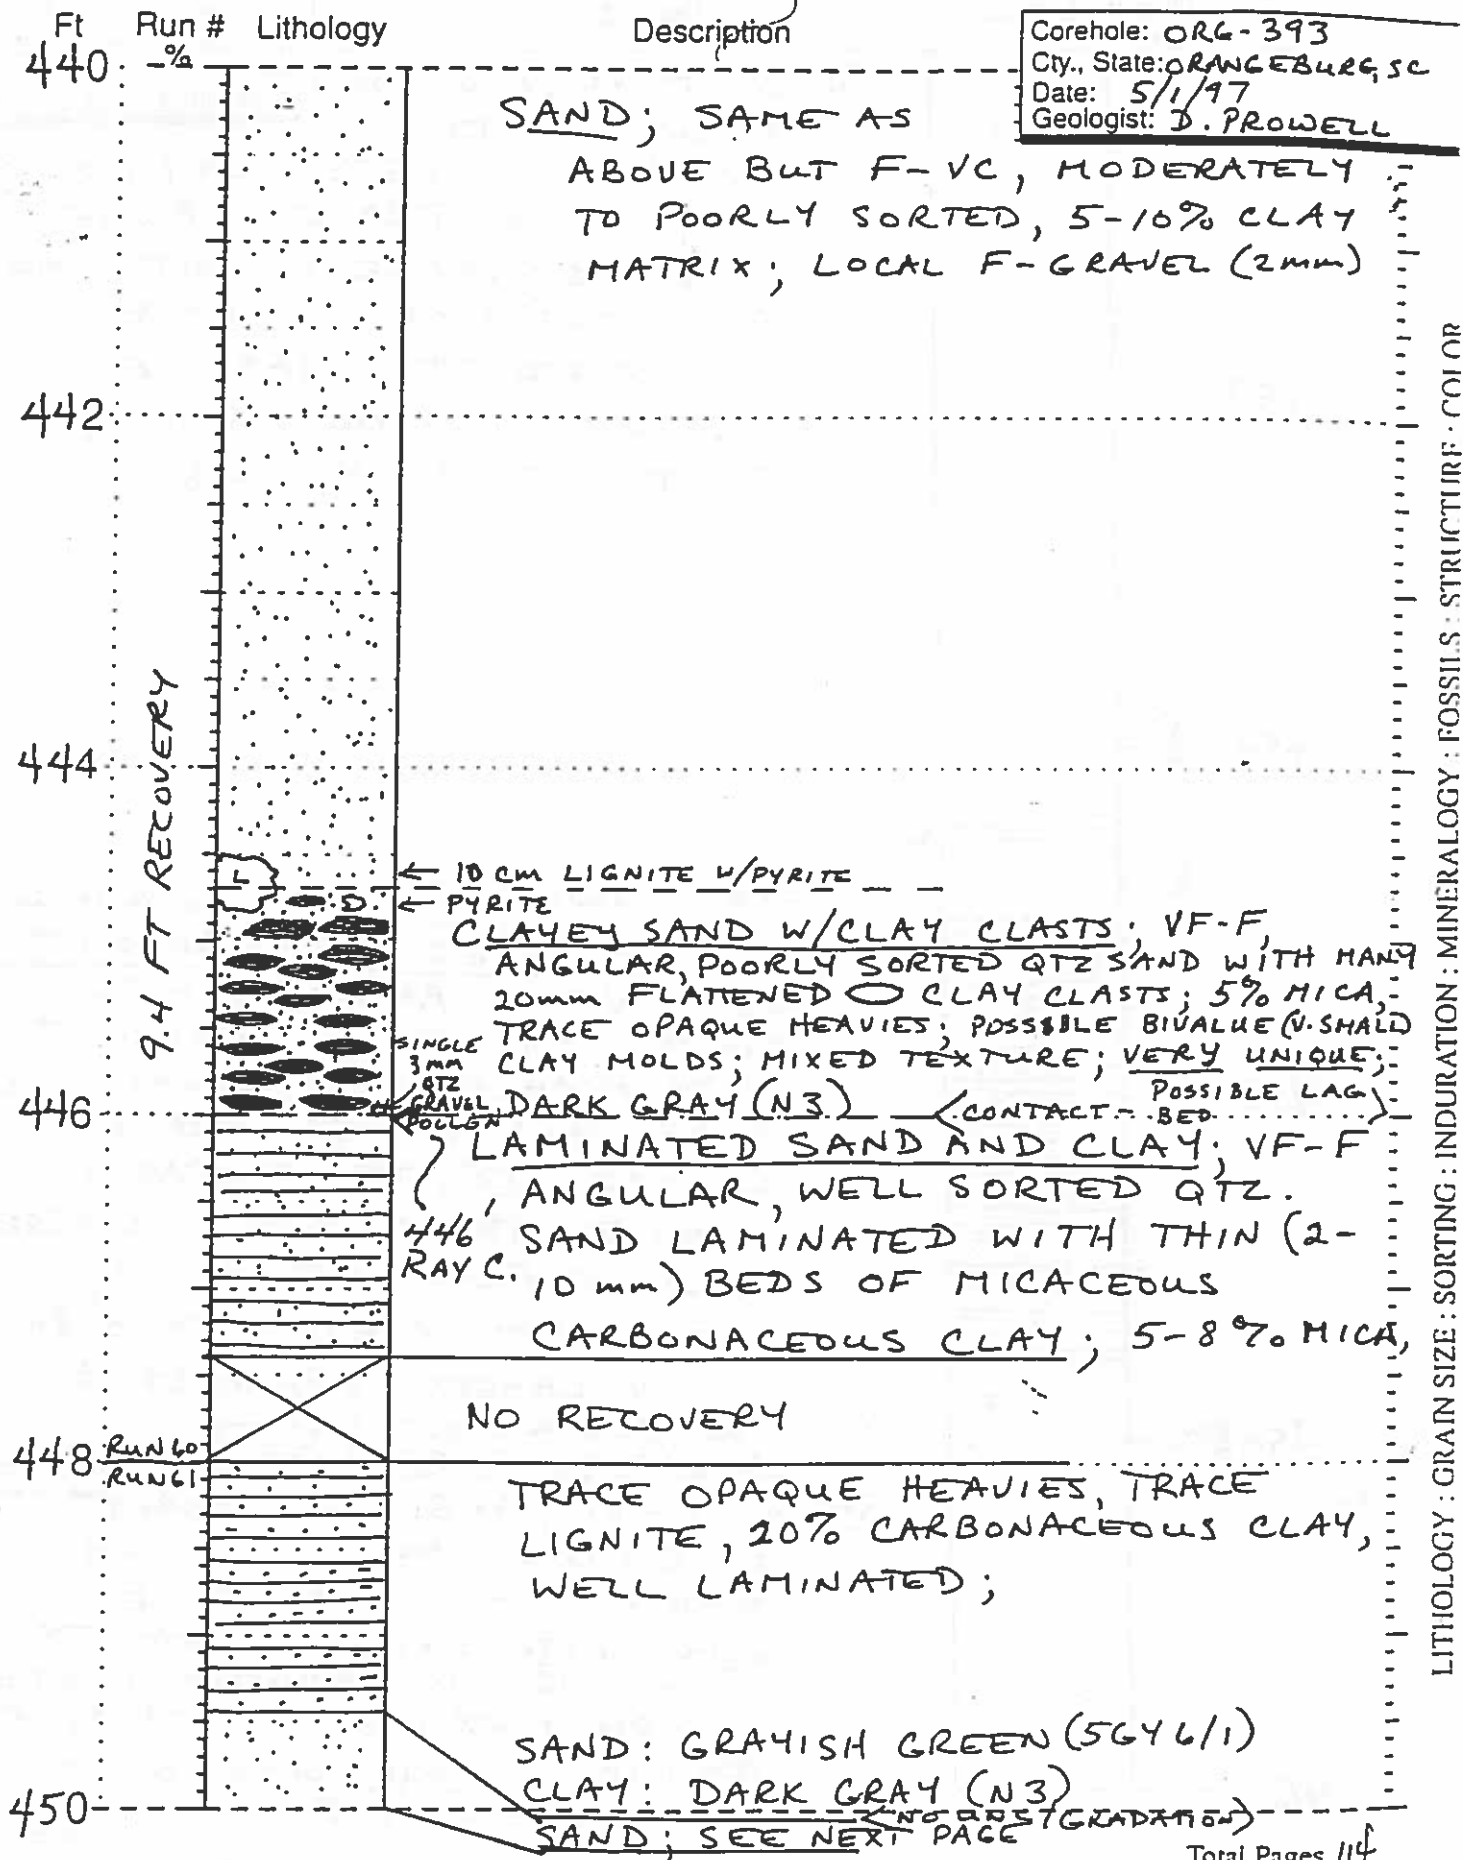 Ft Run # Lithology Description
-%
Corehole: ORG-393
Cty., State: ORANGEBURG, SC
Date: 5/1/97
Geologist: D. PROWELL
440
SAND; SAME AS
ABOVE BUT F-VC, MODERATELY
TO POORLY SORTED, 5-10% CLAY
MATRIX; LOCAL F-GRAVEL (2mm)
442
444
9.4 FT RECOVERY
L
← 10 cm LIGNITE W/PYRITE
← PYRITE
CLAYEY SAND W/CLAY CLASTS; VF-F,
ANGULAR, POORLY SORTED QTZ SAND WITH MANY
20mm FLATTENED CLAY CLASTS; 5% MICA,
TRACE OPAQUE HEAVIES; POSSIBLE BIVALUE (V. SMALL)
CLAY MOLDS; MIXED TEXTURE; VERY UNIQUE;
SINGLE
3 mm
QTZ
GRAVEL
DARK GRAY (N3)
CONTACT - POSSIBLE LAG
BED
446
POLLEN
446
RAY C.
LAMINATED SAND AND CLAY; VF-F
ANGULAR, WELL SORTED QTZ.
SAND LAMINATED WITH THIN (2-
10 mm) BEDS OF MICACEOUS
CARBONACEOUS CLAY; 5-8% MICA,
NO RECOVERY
448
RUN 60
RUN 61
TRACE OPAQUE HEAVIES, TRACE
LIGNITE, 20% CARBONACEOUS CLAY,
WELL LAMINATED;
SAND: GRAYISH GREEN (5GY 6/1)
CLAY: DARK GRAY (N3)
450
(GRADATION)
SAND; SEE NEXT PAGE
Total Pages 114
LITHOLOGY : GRAIN SIZE : SORTING : INDURATION : MINERALOGY : FOSSILS : STRUCTURE : COLOR